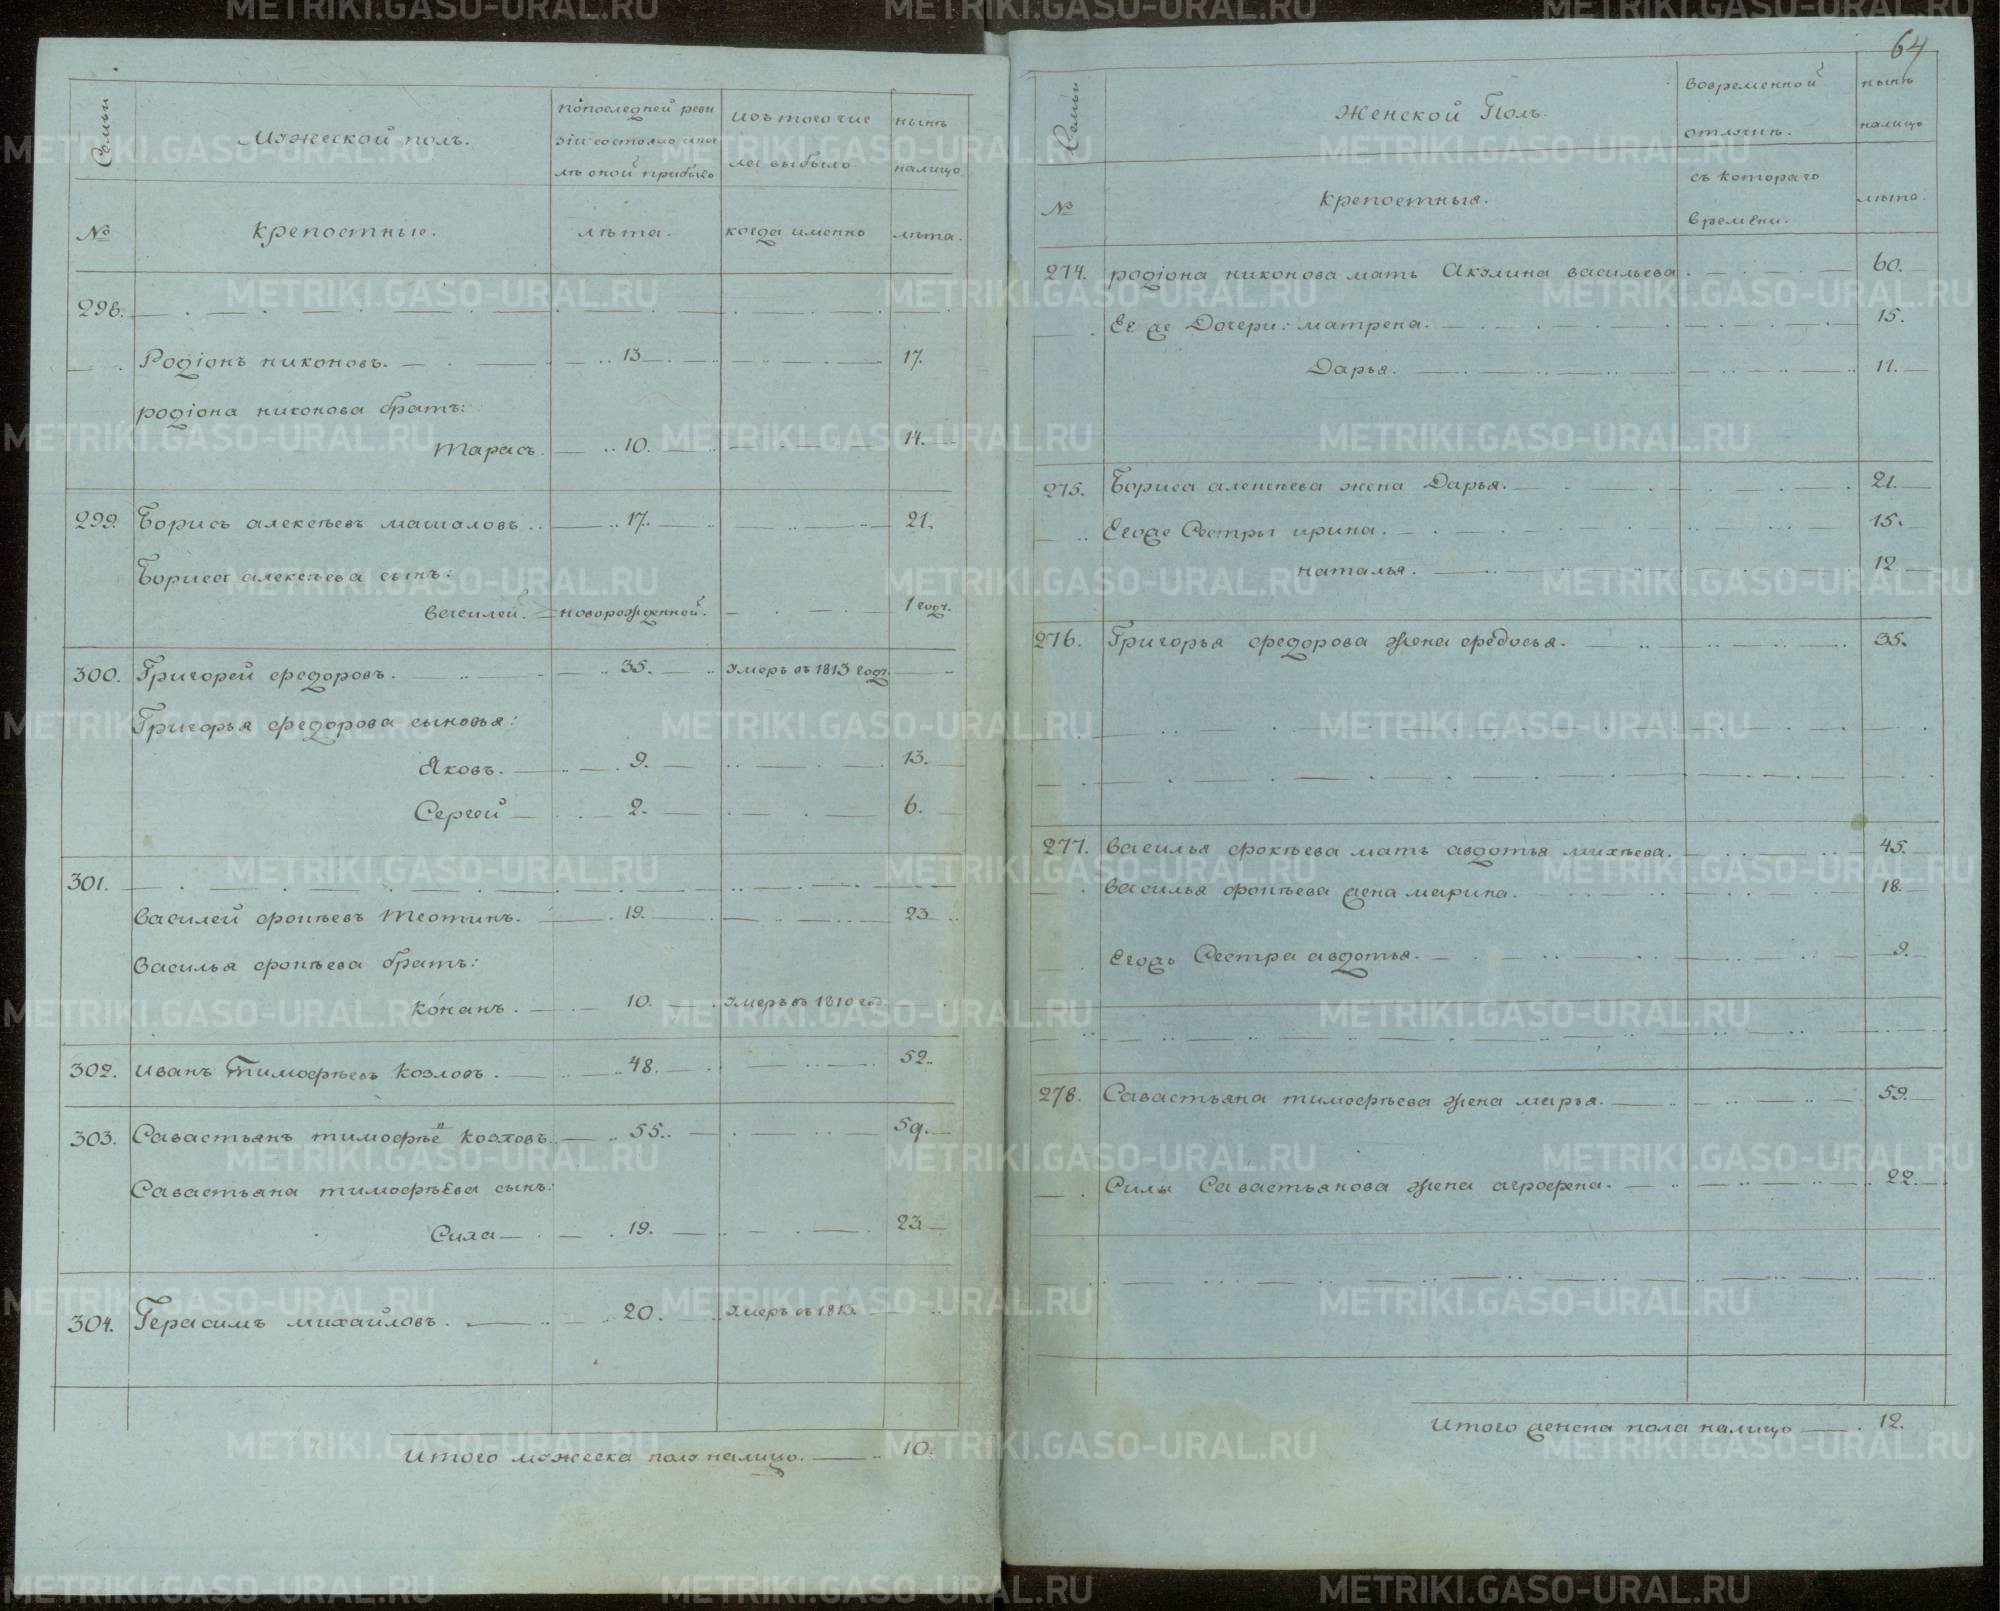 64
Семьи
Мужеской полъ.
попоследней реви
зіи состояло ипос
лѣ оной прибыло
изъ того чис
ла выбыло
нынѣ
налицо
№
крепостные.
лѣта.
когда именно
лѣта.
298.
Родіонъ никоновъ. 13 17.
родіона никонова братъ:
тарасъ. 10. 14.
299. Борисъ алексѣевъ машаловъ 17. 21.
Бориса алексѣева сынъ:
василей. новорожденной. 1 годъ.
300. Григорей федоровъ. 35. умеръ въ 1813 годѣ
Григорья федорова сыновья:
Яковъ. 9. 13.
Сергей 2. 6.
301.
Василей фокѣевъ тиотинъ. 19. 23
Василья фокѣева братъ:
конанъ. 10. умеръ въ 1810 годѣ
302. иванъ Тимофѣевъ козловъ. 48. 52.
303. Савастьянъ тимофѣе козловъ 55. 59.
Савастьяна тимофѣева сынъ:
Сила 19. 23.
304. Герасимъ михайловъ. 20. умеръ въ 1813.
Итого мужеска пола налицо. 10.
Семьи
Женской Полъ.
вовременной
отлучкѣ.
нынѣ
налицо
№
крепостныя.
съ котораго
времени.
лѣта.
274. родіона никонова мать Акулина васильева 60.
Ее же Дочери: матрена. 15.
Дарья. 11.
275. Бориса алексѣева жена Дарья. 21.
Егоже Сестры ирина. 15.
наталья. 12
276. Григорья федорова жена федосья. 35.
277. Василья фокѣева мать авдотья михѣева. 45.
Василья фокѣева жена марина. 18.
Егожъ Сестра авдотья. 9.
278. Савастьяна тимофѣева жена марья. 59.
Силы Савастьянова жена агрофена. 22.
Итого женска пола налицо 12.
METRIKI.GASO-URAL.RU